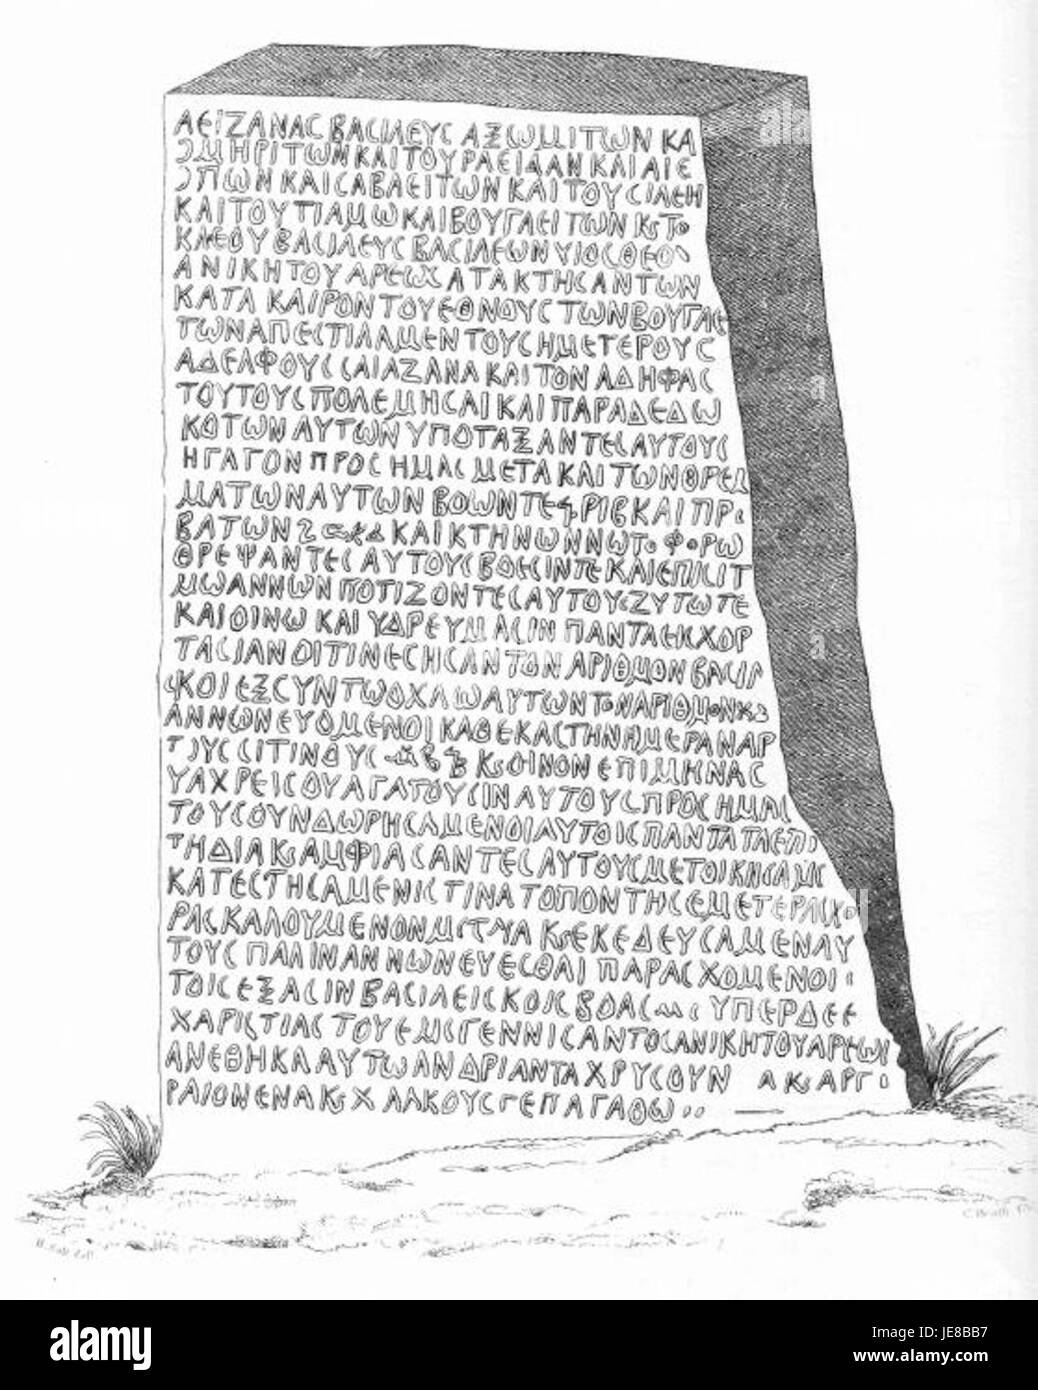 ΑΕΙΖΑΝΑϹ ΒΑϹΙΛΕΥϹ ΑΞΩΜΙΤΩΝ ΚΑ
ΟΜΗΡΙΤΩΝ ΚΑΙ ΤΟΥ ΡΑΕΙΔΑΝ ΚΑΙ ΑΙΕ
ΟΠΩΝ ΚΑΙ ϹΑΒΑΕΙΤΩΝ ΚΑΙ ΤΟΥ ϹΙΛΕΗ
ΚΑΙ ΤΟΥ ΤΙΑΜΩ ΚΑΙ ΒΟΥΓΑΕΙΤΩΝ Κϛ ΤΟ
ΚΑΕΟΥ ΒΑϹΙΛΕΥϹ ΒΑϹΙΛΕΩΝ ΥΙΟϹ ΘΕΟ
ΑΝΙΚΗΤΟΥ ΑΡΕΩϹ ΑΤΑΚΤΗϹΑΝΤΩΝ
ΚΑΤΑ ΚΑΙΡΟΝ ΤΟΥ ΕΘΝΟΥϹ ΤΩΝ ΒΟΥΓΑΕ
ΤΩΝ ΑΠΕϹΤΙΛΑΜΕΝ ΤΟΥϹ ΗΜΕΤΕΡΟΥϹ
ΑΔΕΛΦΟΥϹ ϹΑΙΑΖΑΝΑ ΚΑΙ ΤΟΝ ΑΔΗΦΑϹ
ΤΟΥΤΟΥϹ ΠΟΛΕΜΗϹΑΙ ΚΑΙ ΠΑΡΑΔΕΔΩ
ΚΟΤΩΝ ΑΥΤΩΝ ΥΠΟΤΑΞΑΝΤΕϹ ΑΥΤΟΥϹ
ΗΓΑΓΟΝ ΠΡΟϹ ΗΜΑϹ ΜΕΤΑ ΚΑΙ ΤΩΝ ΘΡΕΜ
ΜΑΤΩΝ ΑΥΤΩΝ ΒΟΩΝ ΤΕ ϟΡΙΒ ΚΑΙ ΠΡΟ
ΒΑΤΩΝ ΚΑΙ ΚΤΗΝΩΝ ΝΩΤΟΦΟΡΩ
ΘΡΕΨΑΝΤΕϹ ΑΥΤΟΥϹ ΒΟΕϹΙΝ ΤΕ ΚΑΙ ΕΠΙϹΙΤ
ΜΩ ΑΝΝΩΝ ΠΟΤΙΖΟΝΤΕϹ ΑΥΤΟΥϹ ΖΥΤΩ ΤΕ
ΚΑΙ ΟΙΝΩ ΚΑΙ ΥΔΡΕΥΜΑϹΙΝ ΠΑΝΤΑ ΕΙϹ ΧΟΡ
ΤΑϹΙΑΝ ΟΙΤΙΝΕϹ ΗϹΑΝ ΤΟΝ ΑΡΙΘΜΟΝ ΒΑϹΙΛ
ϹΚΟΙ ΕΞ ϹΥΝ ΤΩ ΟΧΛΩ ΑΥΤΩΝ ΤΟΝ ΑΡΙΘΜΟΝ
ΑΝΝΩΝΕΥΟΜΕΝΟΙ ΚΑΘ ΕΚΑϹΤΗΝ ΗΜΕΡΑΝ ΑΡ
ΤΟΥϹ ϹΙΤΙΝΟΥϹ Κϛ ΟΙΝΟΝ ΕΠΙ ΜΗΝΑϹ
ΥΑΧΡΕΙϹ ΟΥ ΑΓΑΓΟΥϹΙΝ ΑΥΤΟΥϹ ΠΡΟϹ ΗΜΑϹ
ΤΟΥϹ ΟΥΝ ΔΩΡΗϹΑΜΕΝΟΙ ΑΥΤΟΙϹ ΠΑΝΤΑ ΤΑ ΕΠΙ
ΤΗΔΙΑ Κϛ ΑΜΦΙΑϹΑΝΤΕϹ ΑΥΤΟΥϹ ΜΕΤΟΙΚΗϹΑΜϹ
ΚΑΤΕϹΤΗϹΑΜΕΝ ΙϹ ΤΙΝΑ ΤΟΠΟΝ ΤΗϹ ΕΜΕΤΕΡΑϹ ΧΟ
ΡΑϹ ΚΑΛΟΥΜΕΝΟΝ Κϛ ΕΚΕΔΕΥϹΑΜΕΝ ΑΥ
ΤΟΥϹ ΠΑΛΙΝ ΑΝΝΩΝΕΥΕϹΘΑΙ ΠΑΡΑϹΧΟΜΕΝΟΙ
ΤΟΙϹ ΕΞ ΑϹΙΝ ΒΑϹΙΛΕΙϹΚΟΙϹ ΒΟΑϹ ΥΠΕΡ ΔΕ Ε
ΧΑΡΙϹΤΙΑϹ ΤΟΥ ΕΜϹ ΓΕΝΝΙϹΑΝΤΟϹ ΑΝΙΚΗΤΟΥ ΑΡΕΩϹ
ΑΝΕΘΗΚΑ ΑΥΤΩ ΑΝΔΡΙΑΝΤΑ ΧΡΥϹΟΥΝ Α Κϛ ΑΡΓΥ
ΡΑΙΟΝ ΕΝΑ Κϛ ΧΑΛΚΟΥϹ Γ ΕΠ ΑΓΑΘΩ
alamy
Image ID: JE8BB7
www.alamy.com